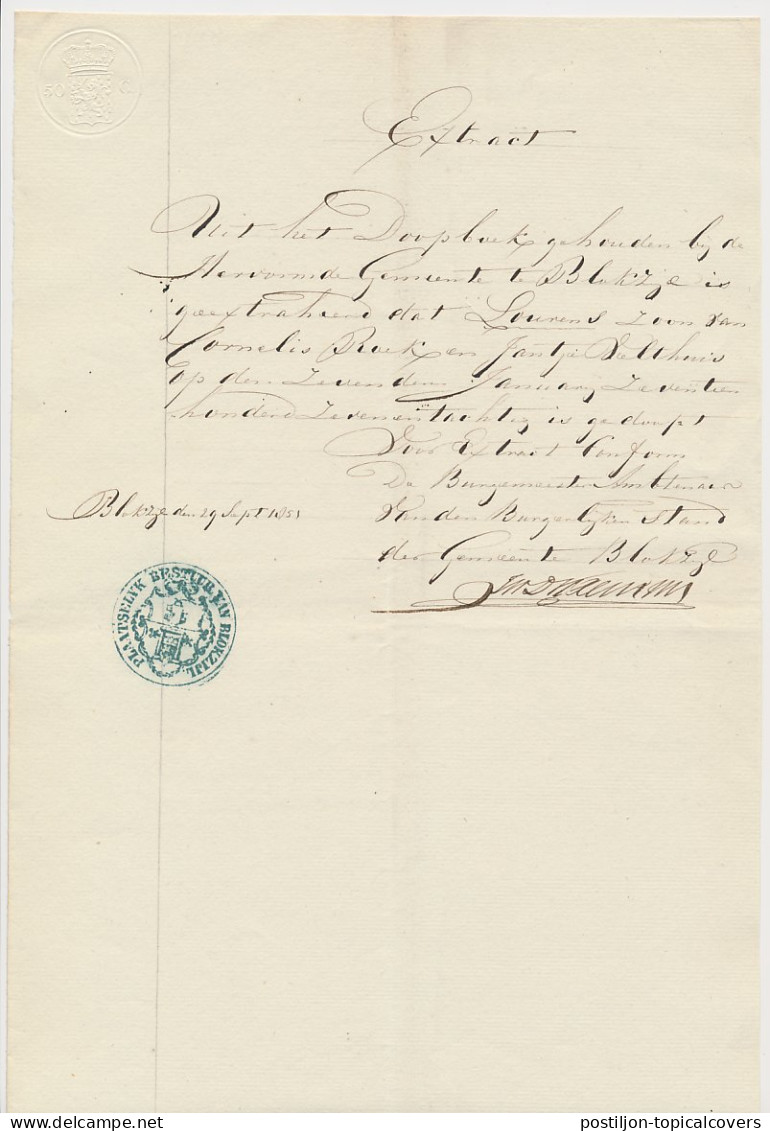 50 C
Extract
Uit het Doopboek gehouden by de
Hervormde Gemeente te Blokzyl is
geextraheerd dat Lourens zoon van
Cornelis Roek en Jantje Velthuis
op den zevenden January zeventien
honderd zevenentachtig is gedoopt
Voor Extract Conform
De Burgemeester Ambtenaar
van den Burgerlyken Stand
der Gemeente Blokzyl
Blokzyl den 29 Sept 1851
PLAATSELYK BESTUUR VAN BLOKZIJL
postiljon-topicalcovers